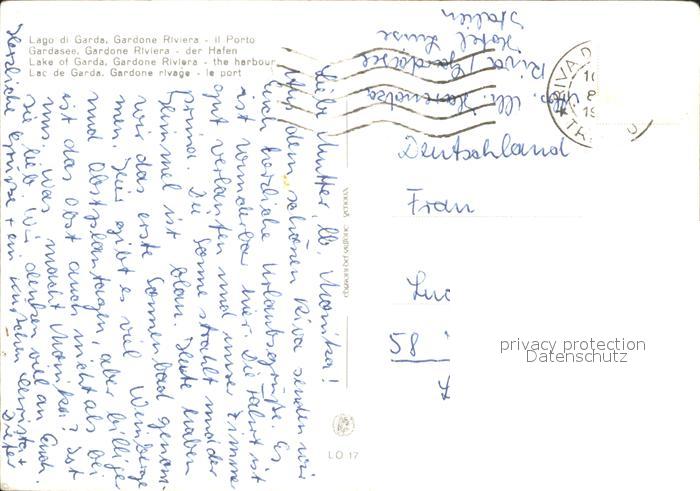 Lago di Garda, Gardone Riviera - il Porto
Gardasee, Gardone Riviera - der Hafen
Lake of Garda, Gardone Riviera - the harbour
Lac de Garda, Gardone rivage - le port
Hotel Luise
Italien
Riva / Gardasee
Liebe Mutter, lb. Monika!
Aus dem schönen Riva senden wir
Euch herzliche Urlaubsgrüße. Es
ist wunderbar hier. Die Fahrt ist
gut verlaufen und unser Zimmer
prima. Die Sonne strahlt und der
Himmel ist blau. Heute haben
wir das erste Sonnenbad genom-
men. Hier gibt es viel Weinberge
und Obstplantagen, aber billiger
ist das Obst auch nicht als bei
uns. Was macht Monika? Ist
sie lieb. Wir denken viel an Euch.
Herzliche Grüsse + ein
Dieter
Deutschland
Frau
58
privacy protection
Datenschutz
LO 17